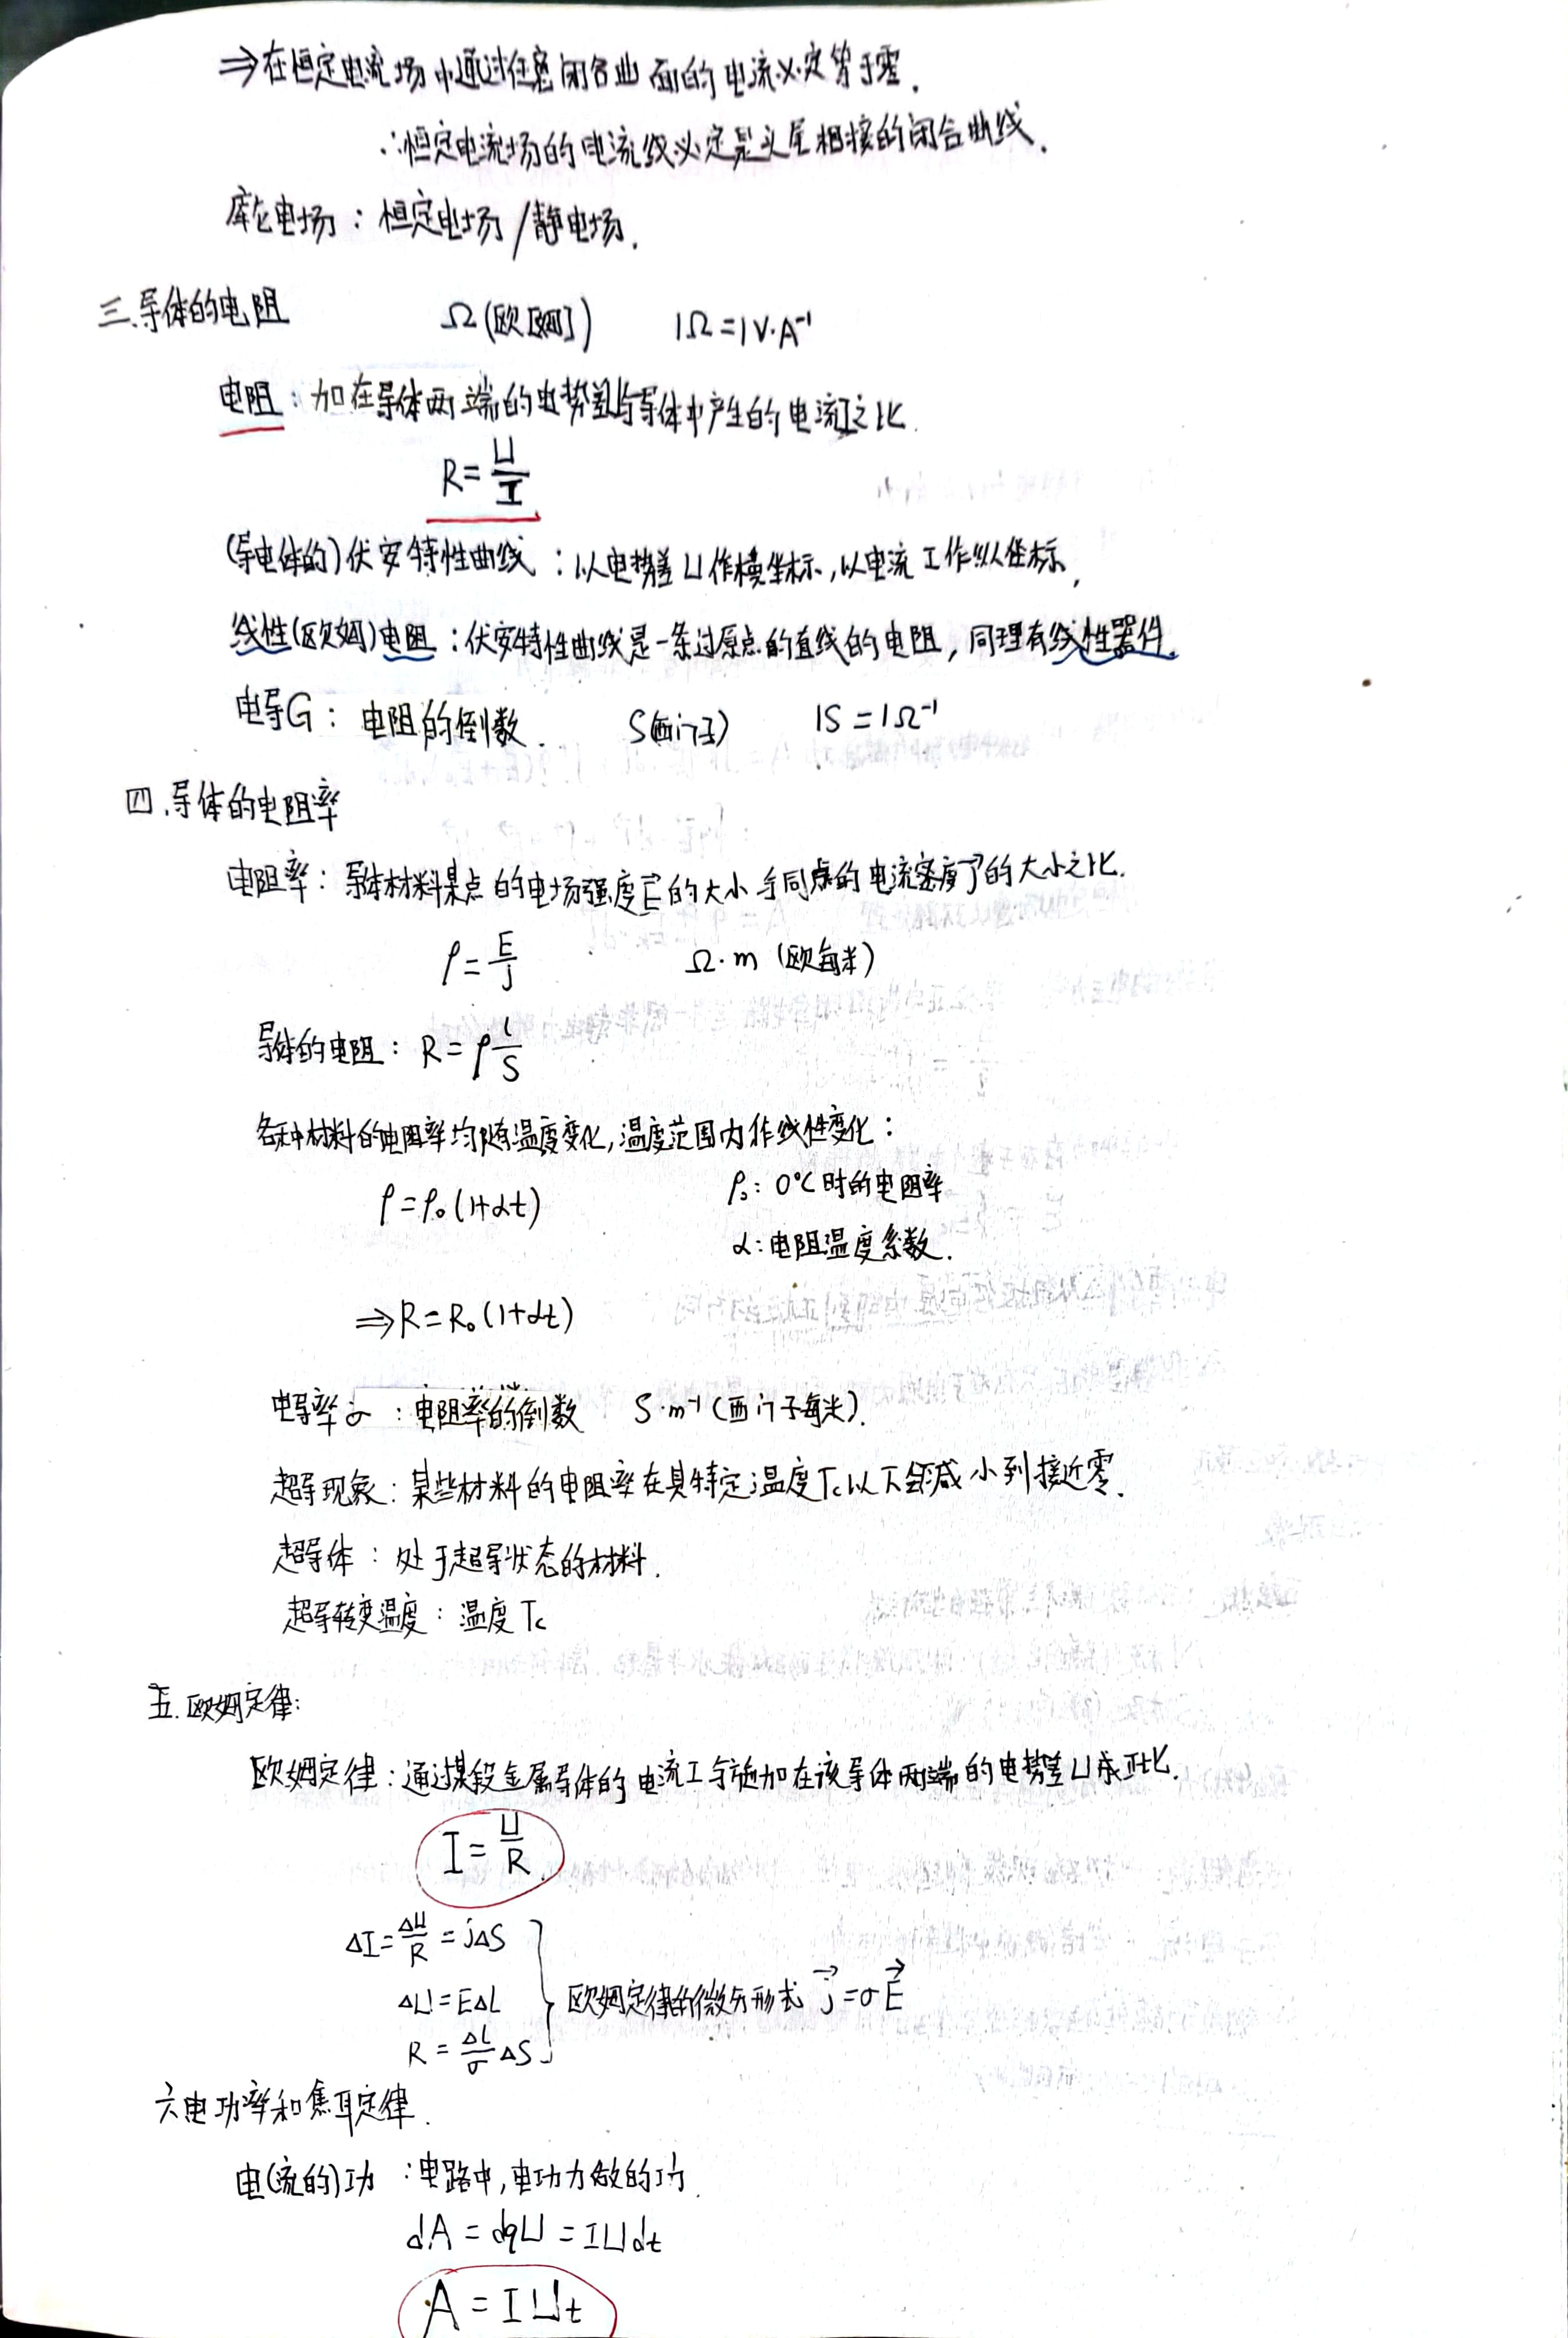 ⇒在恒定电流场中通过任意闭合曲面的电流必定等于零.
∴恒定电流场的电流线必定是头尾相接的闭合曲线.
库仑电场：恒定电场/静电场.
三.导体的电阻 Ω(欧[姆]) 1Ω=1V·A⁻¹
电阻：加在导体两端的电势差与导体中产生的电流I之比.
R=U/I
(导电体的)伏安特性曲线：以电势差U作横坐标,以电流I作纵坐标,
线性(欧姆)电阻：伏安特性曲线是一条过原点的直线的电阻,同理有线性器件.
电导G：电阻的倒数. S(西门子) 1S=1Ω⁻¹
四.导体的电阻率
电阻率：导体材料某点的电场强度E⃗的大小与同点的电流密度j⃗的大小之比.
ρ=E/j Ω·m (欧每米)
导体的电阻：R=ρ l/S
各种材料的电阻率均随温度变化,温度范围内作线性变化：
ρ=ρ₀(1+αt) ρ₀：0℃时的电阻率
α:电阻温度系数.
⇒R=R₀(1+αt)
电导率σ：电阻率的倒数 S·m⁻¹(西门子每米).
超导现象：某些材料的电阻率在其特定温度Tc以下会减小到接近零.
超导体：处于超导状态的材料.
超导转变温度：温度Tc
五.欧姆定律:
欧姆定律：通过某段金属导体的电流I与施加在该导体两端的电势差U成正比.
I=U/R
ΔI=ΔU/R=jΔS
ΔU=EΔL } 欧姆定律的微分形式 j⃗=σE⃗
R=ΔL/σ ΔS
六电功率和焦耳定律.
电(流的)功：电路中,电功力做的功.
dA=dqU=IUdt
A=IUt